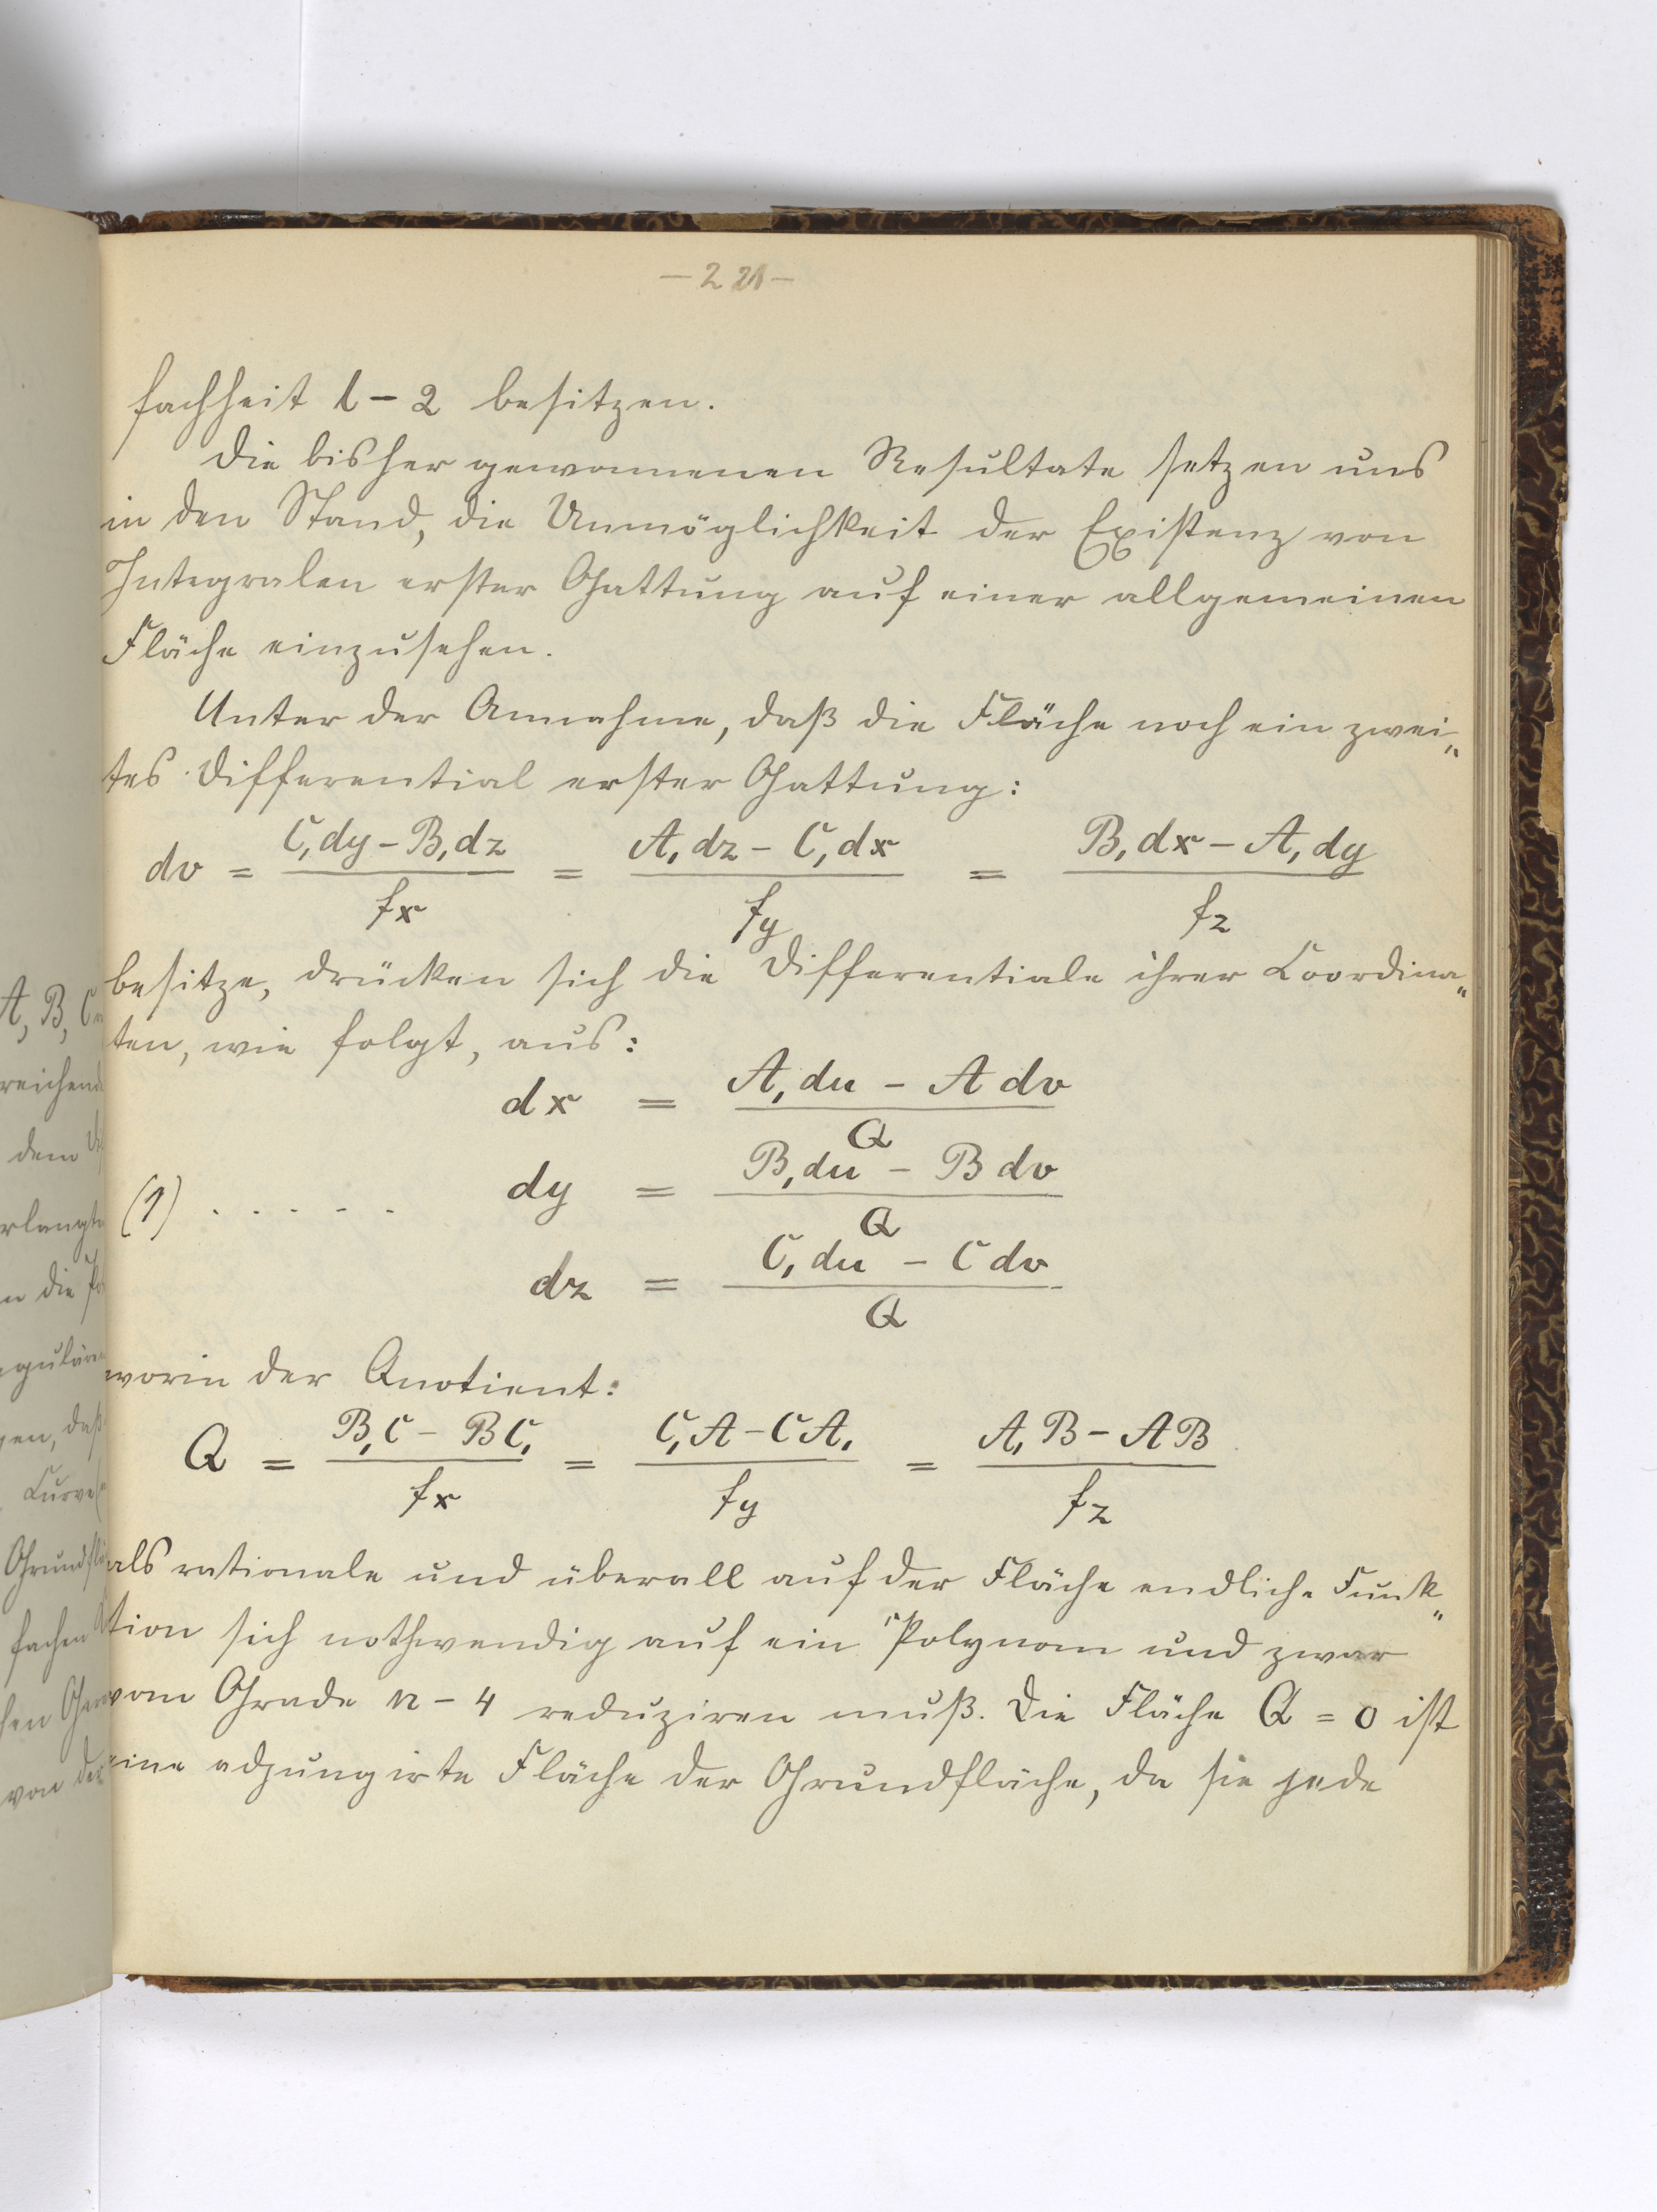 — 221 —
fachheit l – 2 besitzen.
Die bisher gewonnenen Resultate setzen uns
in den Stand, die Unmöglichkeit der Existenz von
Integralen erster Gattung auf einer allgemeinen
Fläche einzusehen.
Unter der Annahme, daß die Fläche noch ein zwei„
tes Differential erster Gattung:
dv = (C₁dy – B₁dz)/fx = (A₁dz – C₁dx)/fy = (B₁dx – A₁dy)/fz
besitze, drücken sich die Differentiale ihrer Coordina„
ten, wie folgt, aus:
dx = (A₁du – A dv)/Q
(1) . . . . . dy = (B₁du – B dv)/Q
dz = (C₁du – C dv)/Q
worin der Quotient:
Q = (B₁C – BC₁)/fx = (C₁A – CA₁)/fy = (A₁B – AB)/fz
als rationale und überall auf der Fläche endliche Funk„
tion sich nothwendig auf ein Polynom und zwar
vom Grade n – 4 reduziren muß. Die Fläche Q = 0 ist
eine adjungirte Fläche der Grundfläche, da sie jede
A, B, C
dem
n die
gen, daß
Curve
fachen
von der